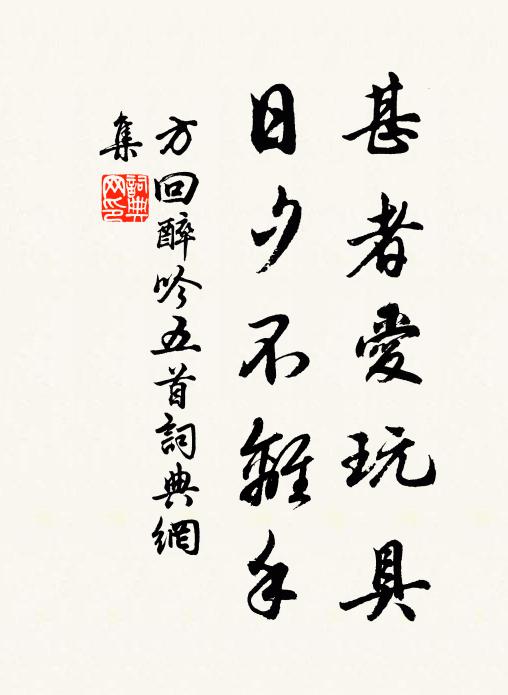 甚者愛玩具
日夕不離手
方回醉吟五首詞典網
集
詞典
网印